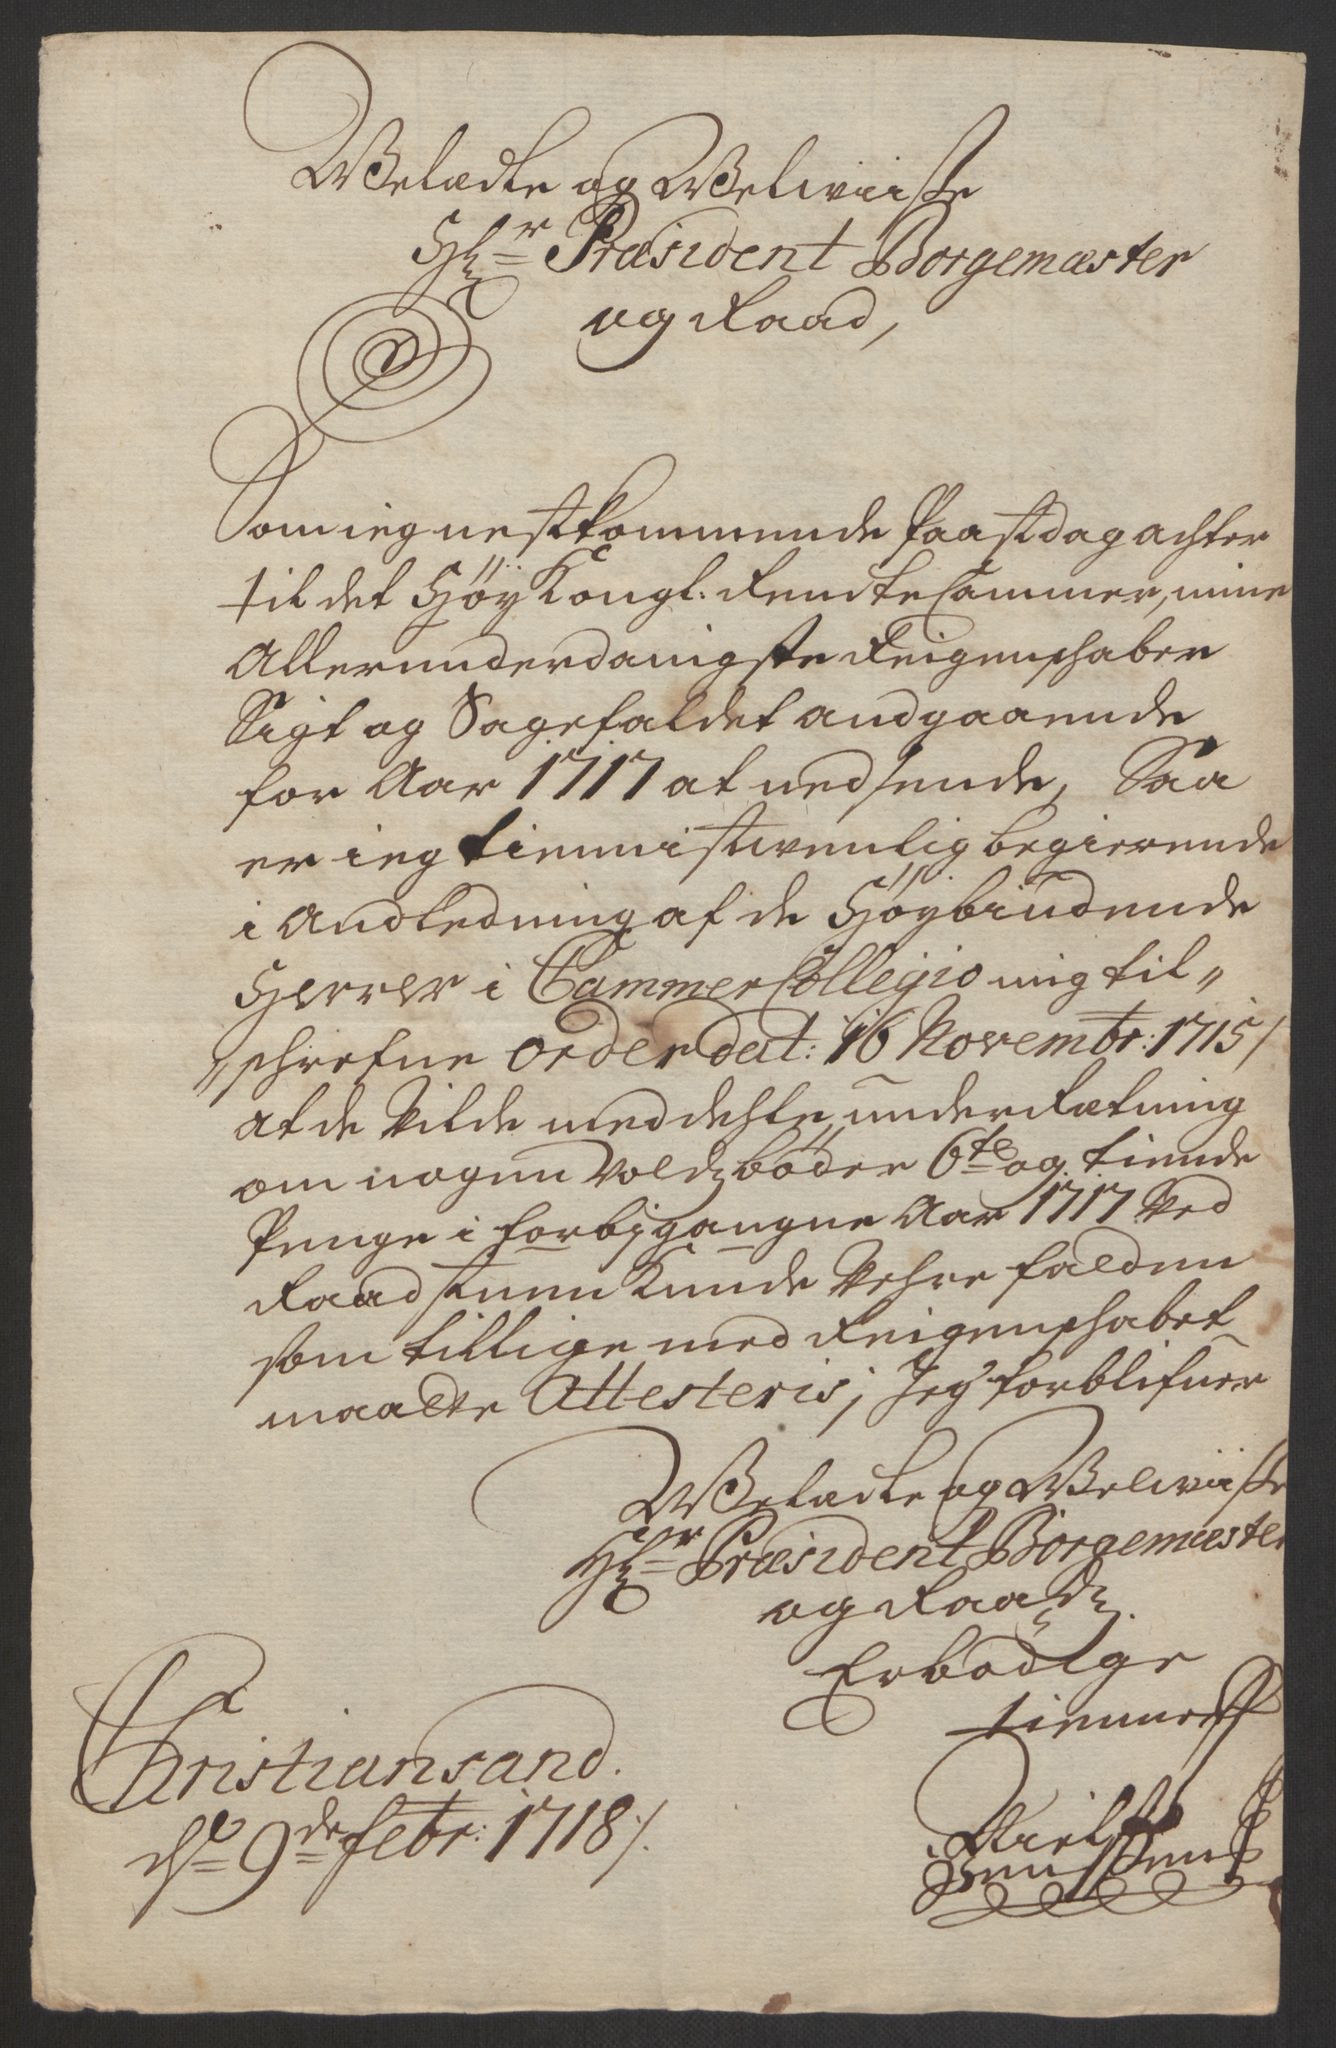 Welædle og Welwiise
Hr Præsident Borgemæster
og Raad,
Som ieg nestkommende Paastdag achter
til det Höy Kongl: Rendte Cammer, mine
Allerunderdanigste Reigenschaber
Sigt og Sagefaldet andgaaende
for Aar 1717 at nedsende, Saa
er ieg tiennistwenlig begierende
i Andledning af de Höybiudende
Herrer i Cammer Collegio mig til„
„schrefne Order dat: 16 Novembr: 1715/
at de Vilde meddehle underRætning
om nogen Voldzböder 6te og tiende
Penge i forbigangne Aar 1717 Ved
Raadstuen Kunde Vehre falden
som tillige med Reigenschabet
maatte Attesteris; Jeg forblifuer
Welædle og Welwiise
Hr Præsident Borgemæster
og Raadz
Erbödige
tienner
Nielss
Jenssen
Christiansand.
d 9de Febr: 1718/.